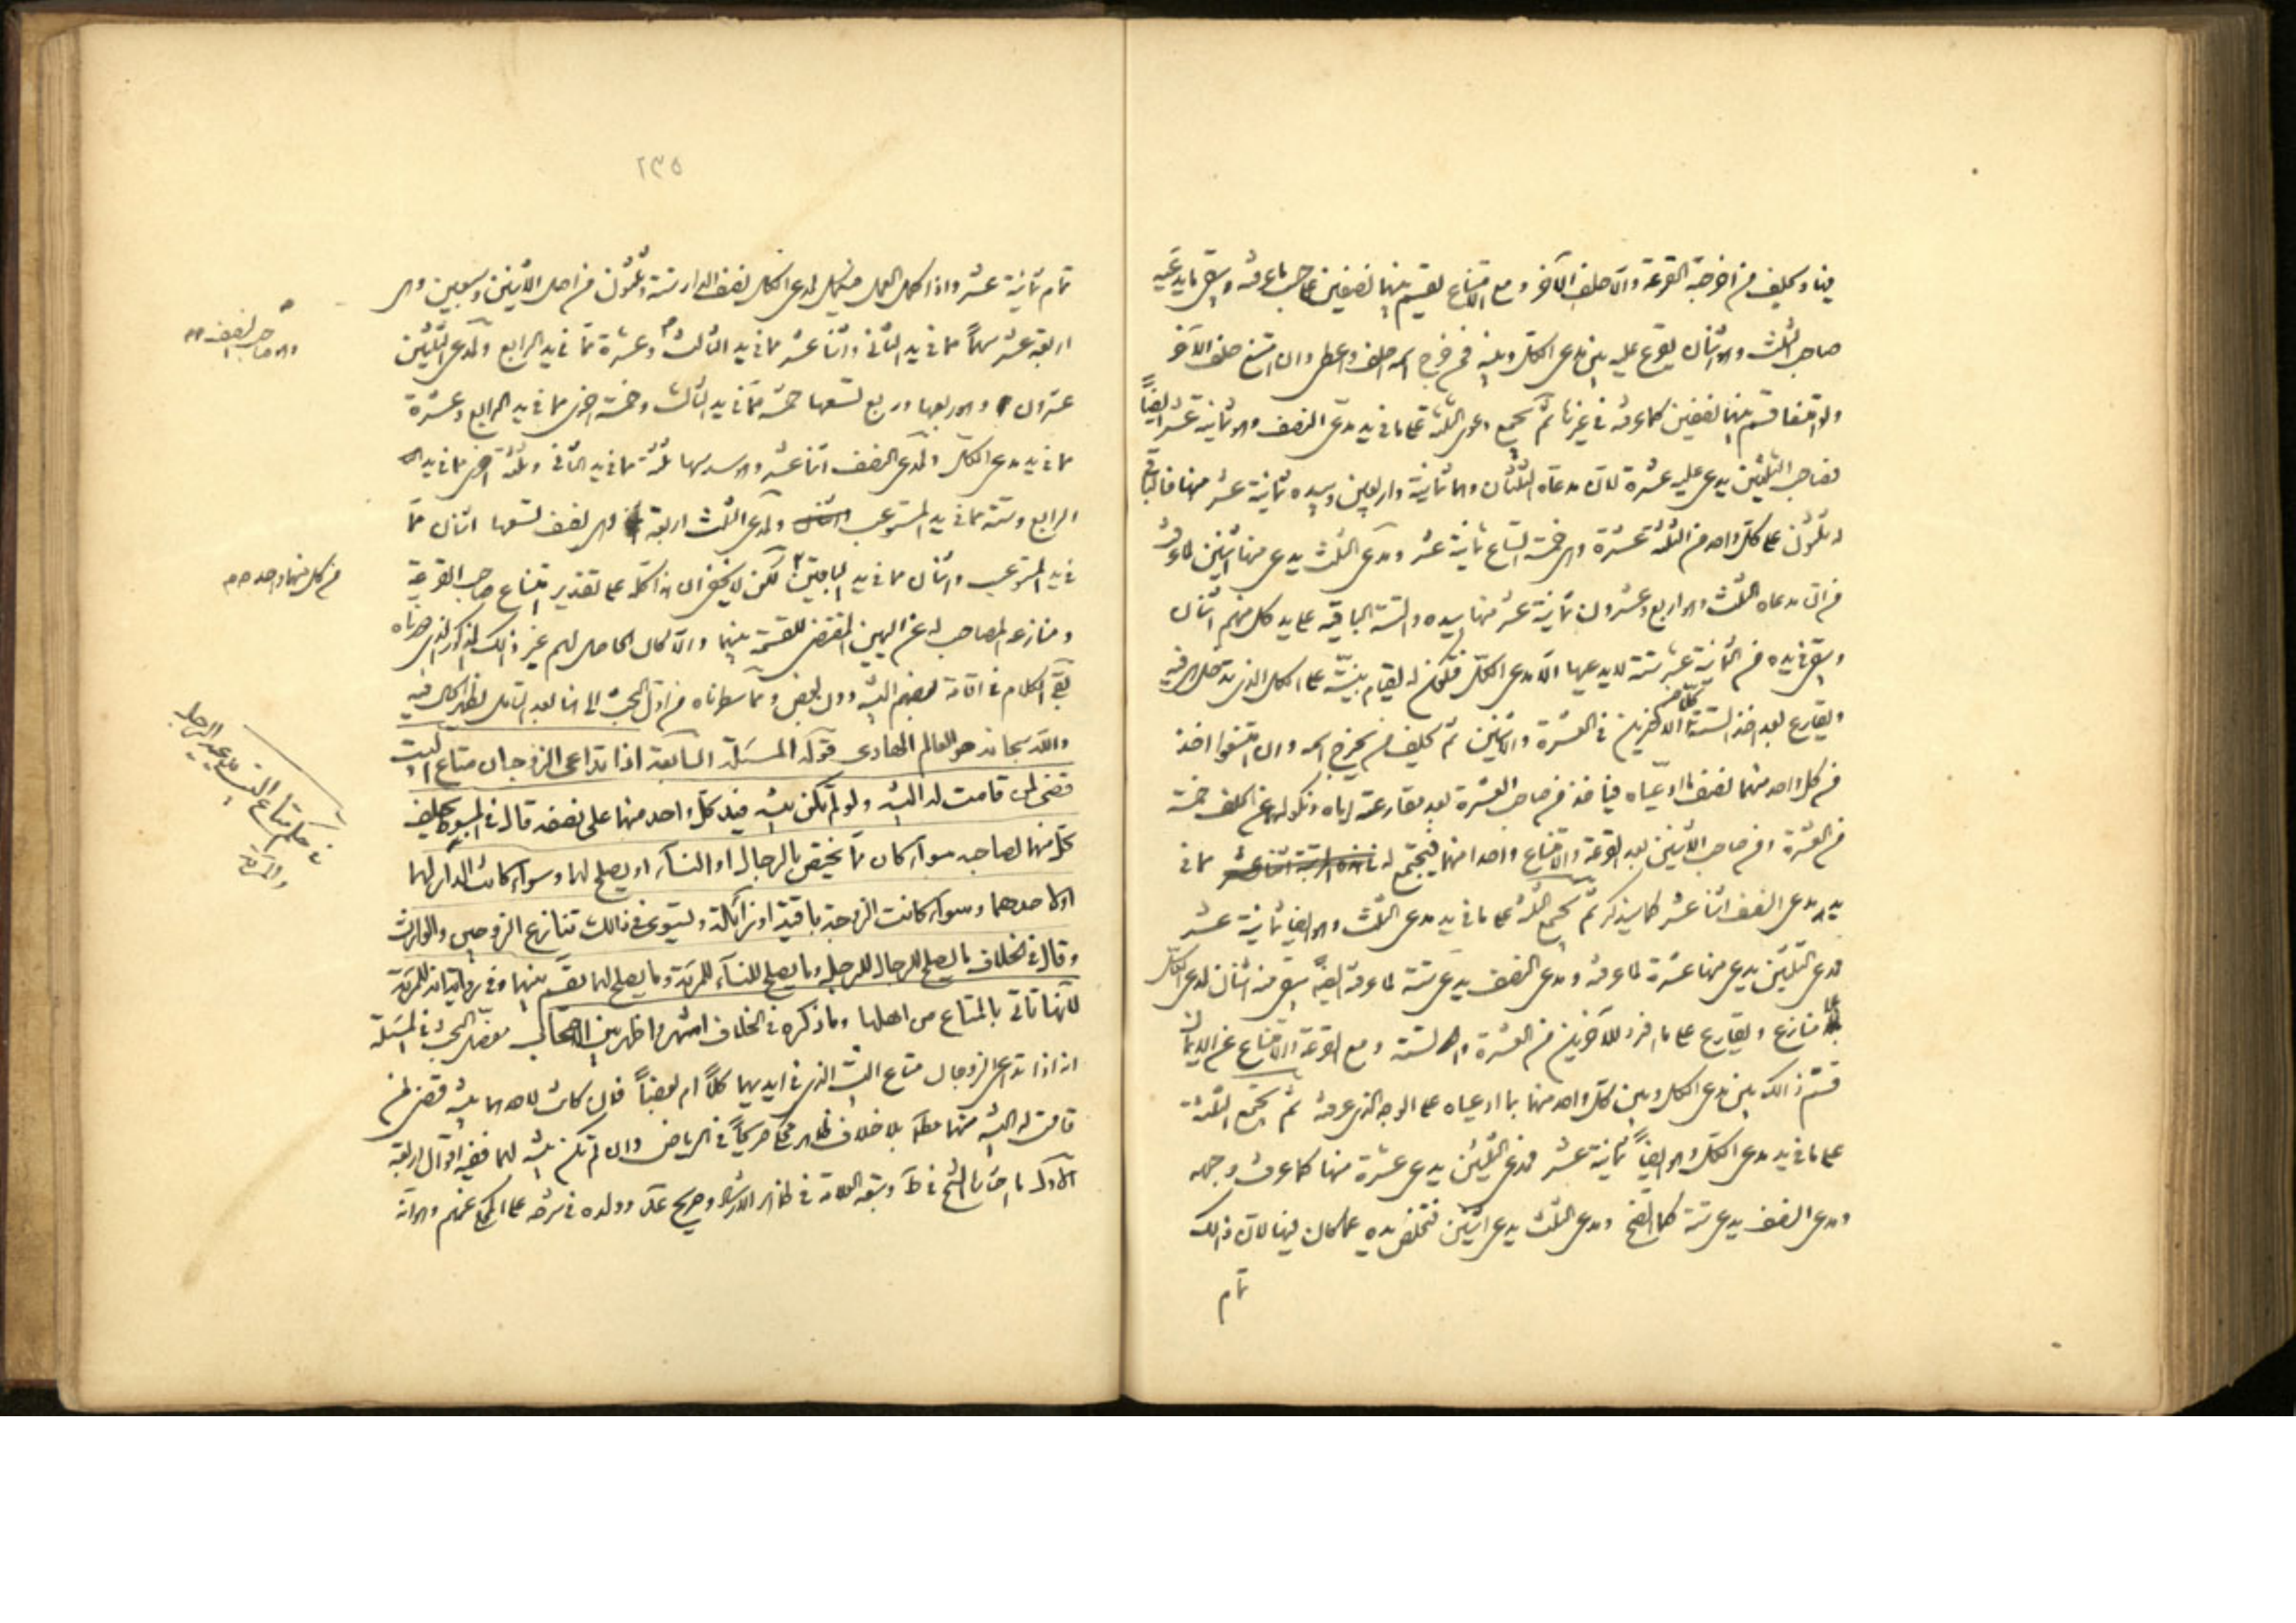 فيها ويحلف من اخرجته القرعة والا حلف الآخر ومع الامتناع يقسم بينهما نصفين على حسب ما عرفته ويبقى ما يدعيه
صاحب الثلث وهو اثنان يقرع عليه بين مدعي الكل وبينه فمن خرج اسمه احلف واعطى وان امتنع حلف الآخر
ولو امتنعا قسم بينهما نصفين كما عرفته في غيرها ثم يجمع دعوى الثلثة على ما في يد مدعي النصف وهو ثمانية عشر ايضاً
فصاحب الثلثين يدعي عليه عشرة لان مدعاه الثلثان وهما ثمانية واربعين وبيده ثمانية عشر منها فالباقي
وثلثون على كل واحد من الثلثة عشرة وهي خمسة اتساع ثمانية عشر ومدعي الثلث يدعي منها اثنين لما عرفت
من ان مدعاه الثلث وهو اربع وعشرون ثمانية عشر منها بيده والستة الباقية على يد كل منهم اثنان
ويبقى في يده من الثمانية عشر ستة لا يدعيها الا مدعي الكل فتكون له ليقام بينته على الكل الذي تدخل هي فيه
ويقارع بعد اخذ الستة كلا من الاخرين في العشرة والاثنين ثم يحلف من يخرج اسمه وان امتنعوا اخذ
من كل واحد منهما نصف ما ادعياه فياخذ من صاحب العشرة بعد مقارعته اياه ونكولهما عن الحلف خمسة
من العشرة ومن صاحب الاثنين بعد القرعة والامتناع واحدا منهما فيجتمع له مما في
يد مدعي النصف اثنا عشر كما سيذكر ثم يجمع الثلثة على ما في يد مدعي الثلث وهو ايضا ثمانية عشر
فمدعي الثلثين يدعي منها عشرة لما عرفته ومدعي النصف يدعي ستة لما عرفته ايضاً يبقى منه اثنان لمدعي الكل
بلا منازع ويقارع على ما افرد للآخرين من العشرة والستة ومع القرعة والامتناع عن الايمان
قسم ذالك بين مدعي الكل وبين كل واحد منهما بما ادعياه على الوجه الذي عرفته ثم يجمع الثلثة
على ما في يد مدعي الكل وهو ايضاً ثمانية عشر فمدعي الثلثين يدعي عشرة منها كما عرفت وجهه
ومدعي النصف يدعي ستة كما اتضح ومدعي الثلث يدعي اثنين فتخلص يده عما كان فيها لان ذالك
تمام
٢٣٥
تمام ثمانية عشر واذا كمل العمل فيكمل لمدعي الكل نصف الدار ستة وثلثون من اصل الاثنين وسبعين وهي
اربعة عشر سهماً مما في يد الثاني واثنا عشر مما في يد الثالث وعشرة مما في يد الرابع ولمدعي الثلثين
عشرون وهو ربعها وربع تسعها خمسة مما في يد الثالث وخمسة اخرى مما في يد الرابع وعشرة
مما في يد مدعي الكل ولمدعي النصف اثنا عشر وهو سدسها ثلثة مما في يد الثاني وثلثة اخرى مما في يد
الرابع وستة مما في يد المستوعب ولمدعي الثلث اربعة هي نصف تسعها اثنان مما
في يد المستوعب واثنان مما في يد الباقيين لكن لا يخفى ان هذا كله على تقدير امتناع صاحب القرعة
ومنازعه المصاحب له عن اليمين المقتضي للقسمة بينهما والا لكان الحاصل لهم غير ذالك
بقي الكلام في اقامة بعضهم البينة دون بعض ومما سطرناه من اول البحث الى هنا بعد التامل يظهر الحال فيه
والله سبحانه هو العالم الهادي قوله المسئلة السابعة اذا تداعى الزوجان متاع البيت
قضى لمن قامت له البينة ولو لم تكن بينة فيد كل واحد منهما على نصفه قال في المبسوط يحلف
كل منهما لصاحبه سواء كان مما يختص بالرجال او النساء او يصلح لهما وسواء كانت الدار لهما
او لاحدهما وسواء كانت الزوجة باقية او زائلة ويستوي في ذالك تنازع الزوجين والوارث
وقال في الخلاف ما يصلح للرجال للرجل وما يصلح للنساء للمرئة وما يصلح لهما يقسم بينهما وفي رواية انه للمرئة
لانها تاتي بالمتاع من اهلها وما ذكره في الخلاف اشهر واظهر بين الاصحاب مفصل البحث في المسئلة
انه اذا تداعى الزوجان متاع البيت الذي في ايديهما كلاً ام بعضاً فان كانت لاحدهما بينة قضى لمن
قامت له البينة منهما مطلقا بلا خلاف ظاهر محكى صريحاً في الرياض وان لم تكن بينة لهما ففيه اقوال اربعة
الاول ما اختاره الشيخ في ط وتبعه العلامة في ظاهر الارشاد وصريح عد وولده في شرحه على ما حكى عنهم وهو انه
وهو صاحب النصف
من كل منهما واحد
في حكم متاع البيت يدعيه الرجل
والمرئة